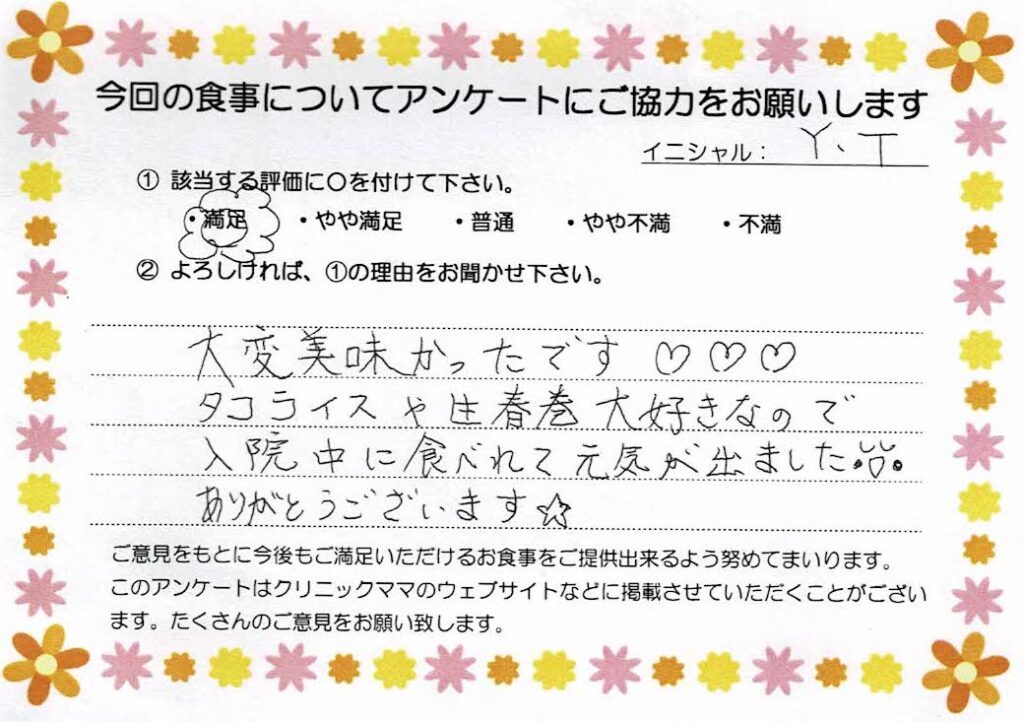 今回の食事についてアンケートにご協力をお願いします
イニシャル： Y、T
① 該当する評価に〇を付けて下さい。
・満足 ・やや満足 ・普通 ・やや不満 ・不満
② よろしければ、①の理由をお聞かせ下さい。
大変美味かったです♡♡♡
タコライスや生春巻大好きなので
入院中に食べれて元気が出ました
ありがとうございます☆
ご意見をもとに今後もご満足いただけるお食事をご提供出来るよう努めてまいります。
このアンケートはクリニックママのウェブサイトなどに掲載させていただくことがござい
ます。たくさんのご意見をお願い致します。